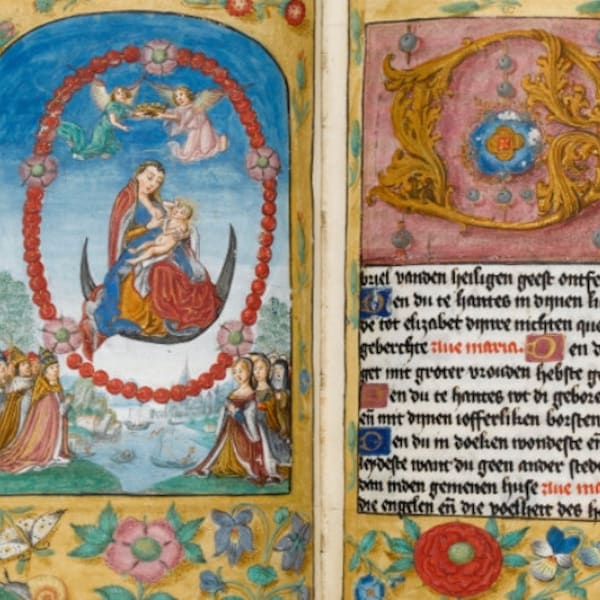 briel vanden heiligen geest ontfe
en du te hantes in dijnen li
de tot elizabet dijnre nichten que
geberchte Aue maria. O en d
get mit groter vrouden hebste g
en du te hantes tot di gebore
eñ mit dijnen ioffer­liken borsten
O en du in doeken wondeste eñ
leydeste want du geen ander stede
dan inden gemenen huse Aue ma
die engelen eñ die des h